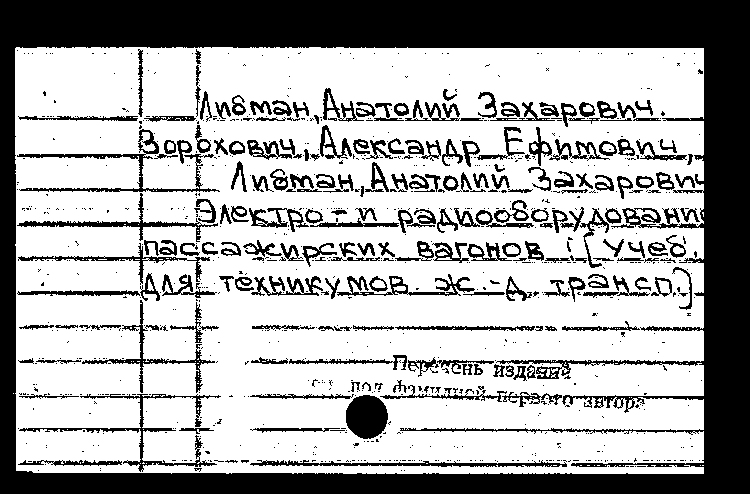 Либман, Анатолий Захарович.
Зорохович, Александр Ефимович,
Либман, Анатолий Захарович
Электро- и радиооборудование
пассажирских вагонов : [Учеб.
для техникумов ж.-д. трансп.]
Перечень изданий
под фамилией первого автора